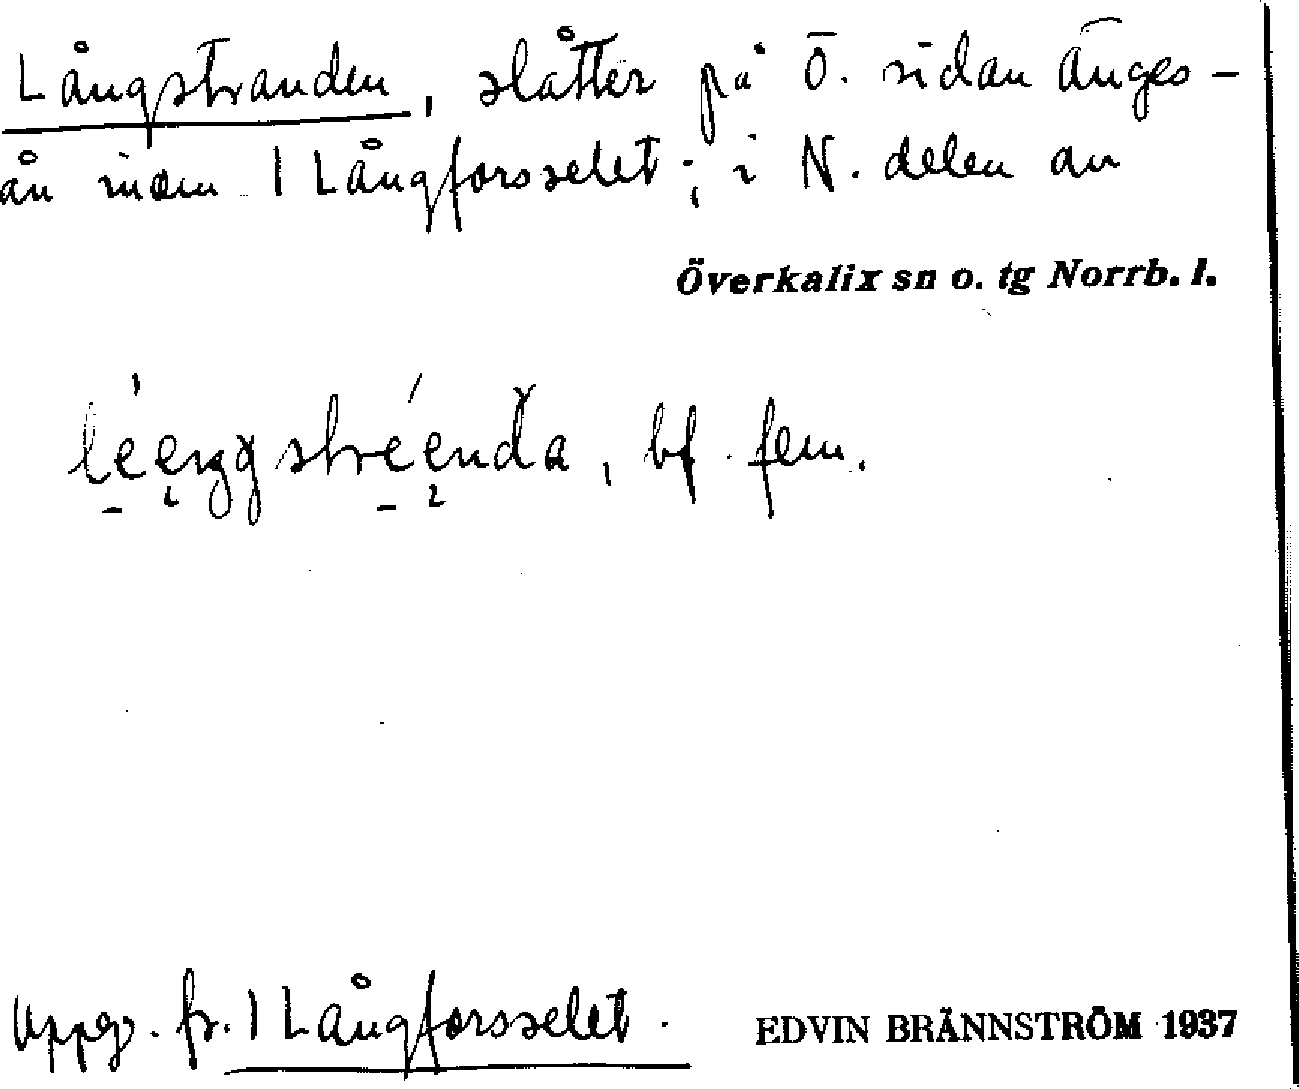 Långstranden, slåtter på Ö. sidan Änges-
ån inom 1 Långforsselet; i N. delen av
Överkalix sn o. tg Norrb. l.
bf. fem.
Uppg. fr. 1 Långforsselet.
EDVIN BRÄNNSTRÖM 1937